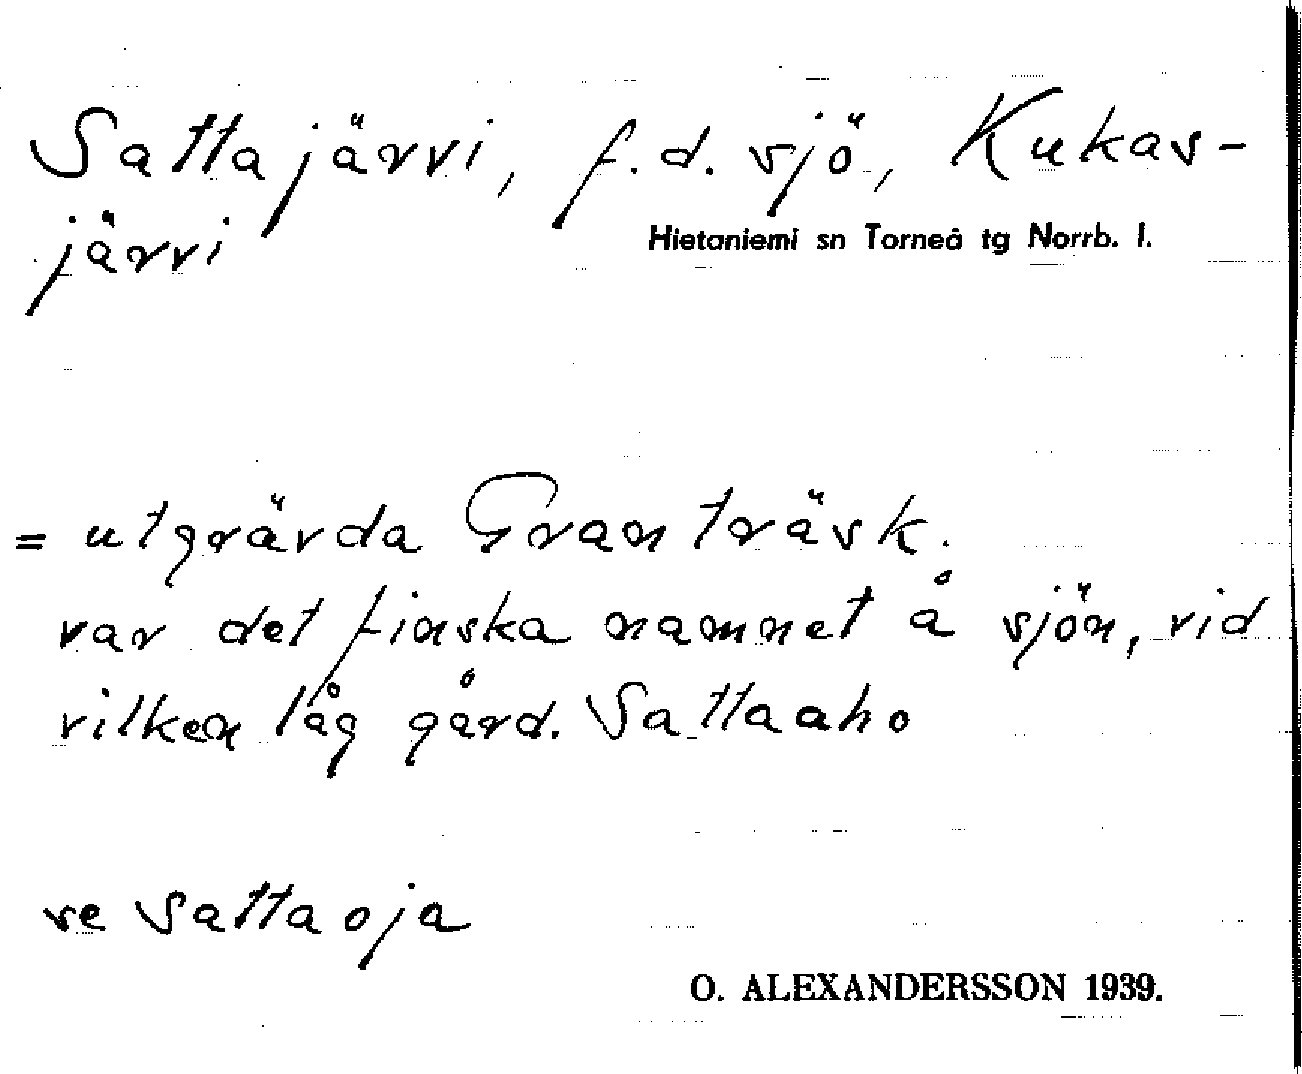 Sattajärvi, f.d. sjö, Kukas-
järvi
Hietaniemi sn Torneå tg Norrb. l.
= utgrävda Granträsk.
var det finska namnet å sjön, vid
vilken låg gård. Sattaaho
se Sattaoja
O. ALEXANDERSSON 1939.